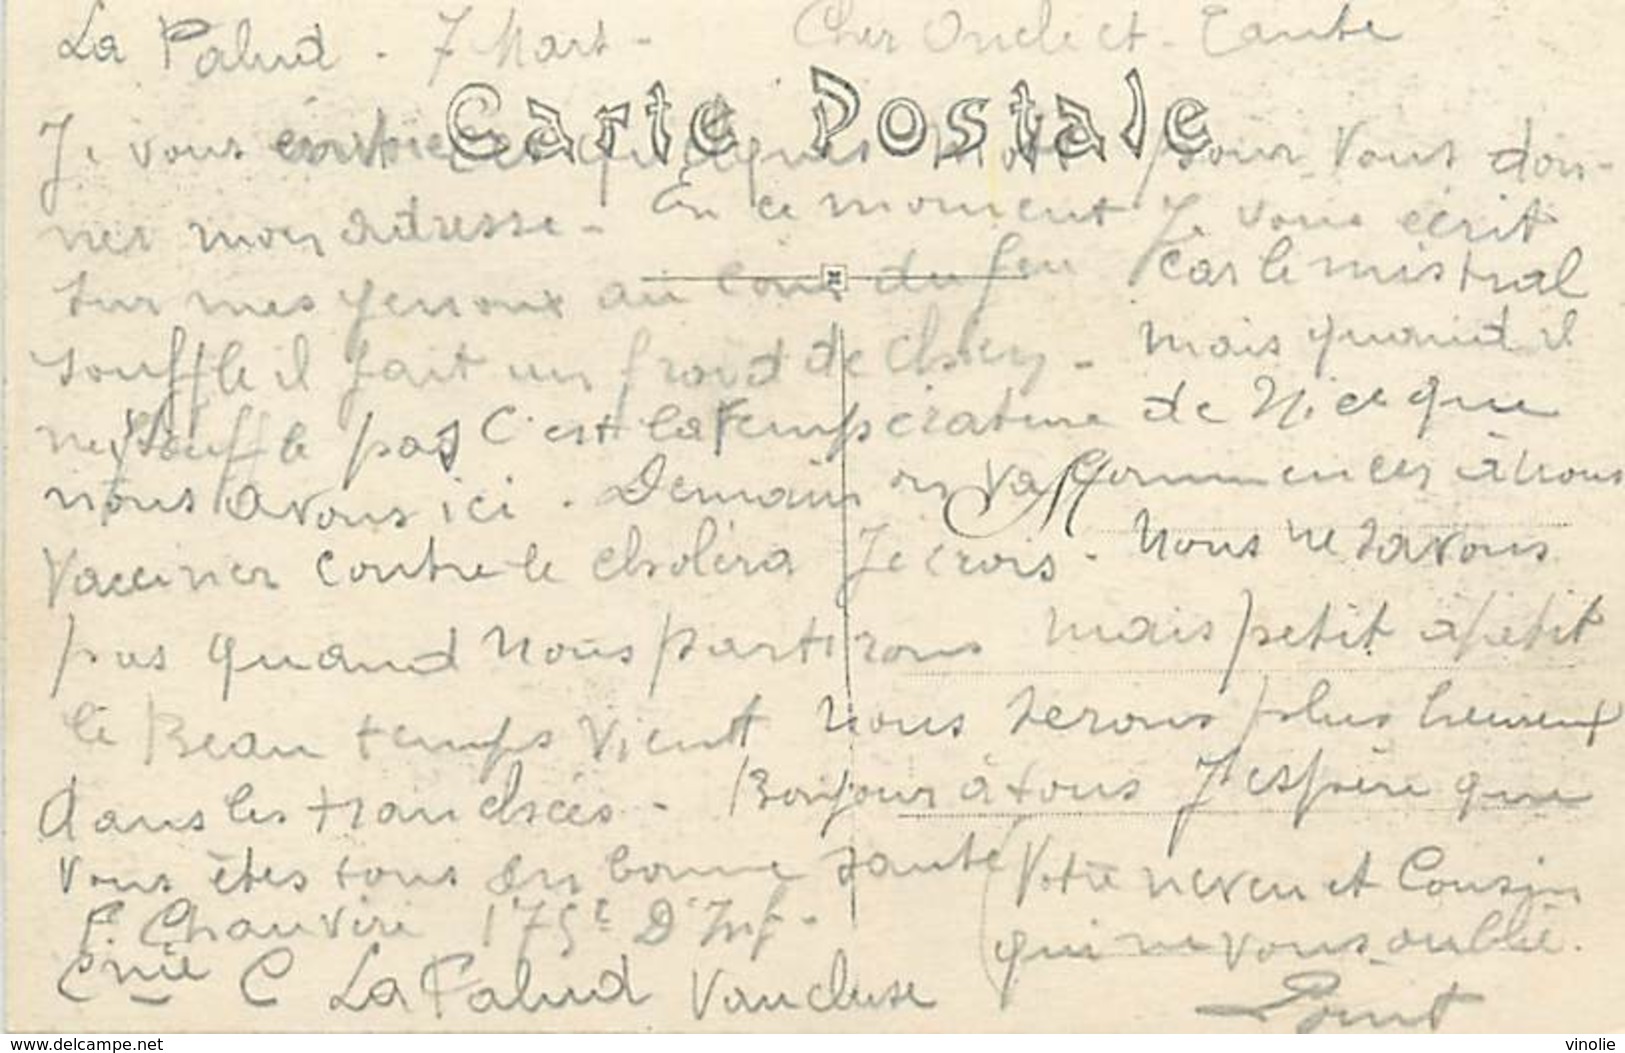 La Palud - 7 Mars - Cher Oncle et Tante
Carte Postale
Je vous quelques mots pour vous don-
ner mon adresse - En ce moment Je vous écrit
sur mes genoux au coin du feu car le mistral
souffle il fait un froid de chien - mais quand il
ne souffle pas C'est la Température de Nice que
nous avons ici . Demain on va commencer à nous
M
Vacciner contre le choléra Je crois - Nous ne savons
pas quand Nous partirons mais petit à petit
le Beau temps vient nous serons plus heureux
dans les tranchées - Bonjour à tous J'espère que
vous êtes tous en bonne santé
Votre neveu et Cousin
qui ne vous oublie.
F Chauviré 175e D'Inf -
Cnie C La Palud Vaucluse
www.delcampe.net
vinolie